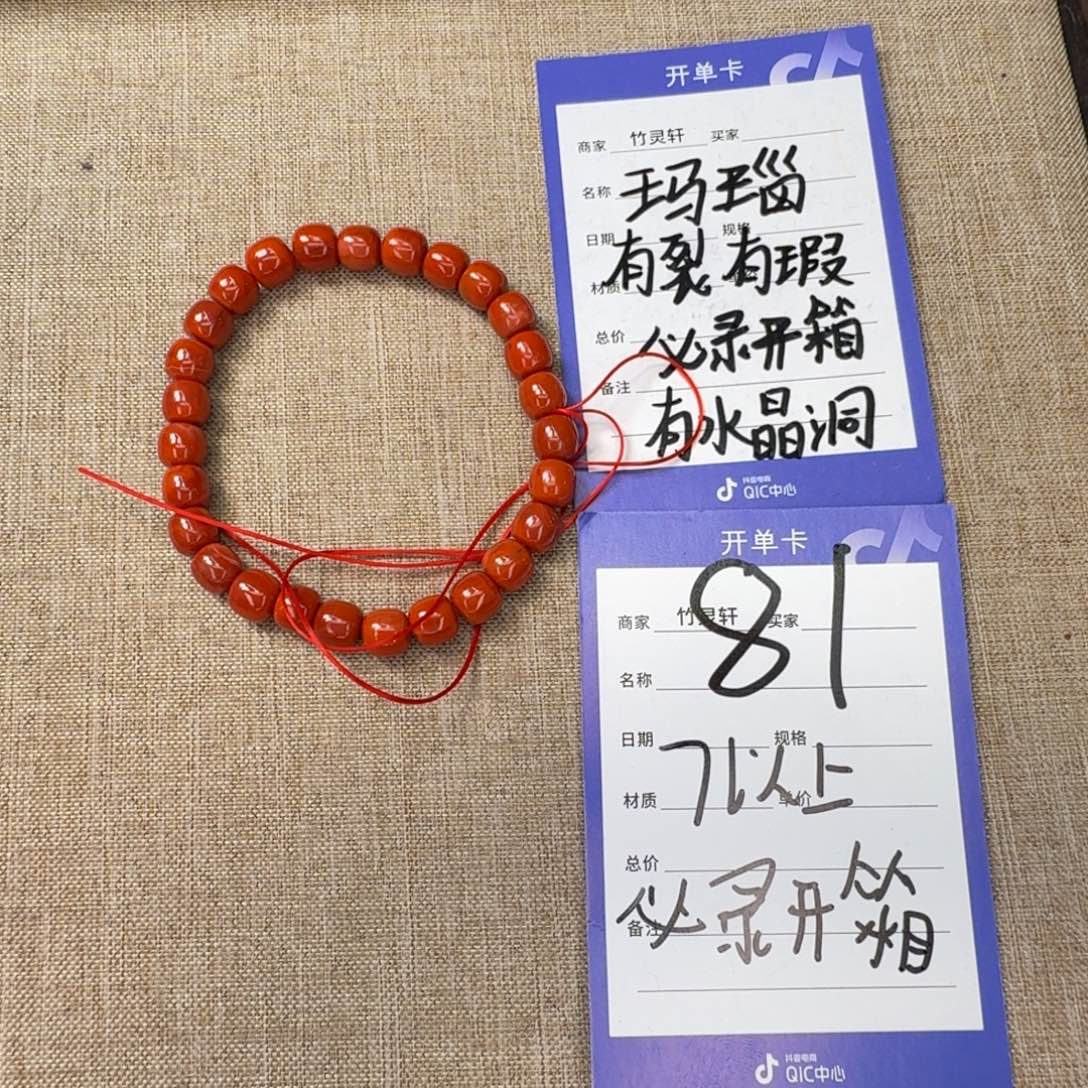 开单卡
商家 竹灵轩 买家
名称 玛瑙
日期 规格
有裂有瑕
材质
总价 必录开箱
备注
有水晶洞
抖音电商
QIC中心
开单卡
81
商家 竹灵轩 买家
名称
日期 规格
7以上
材质 单价
总价
必录开箱
备注
抖音电商
QIC中心